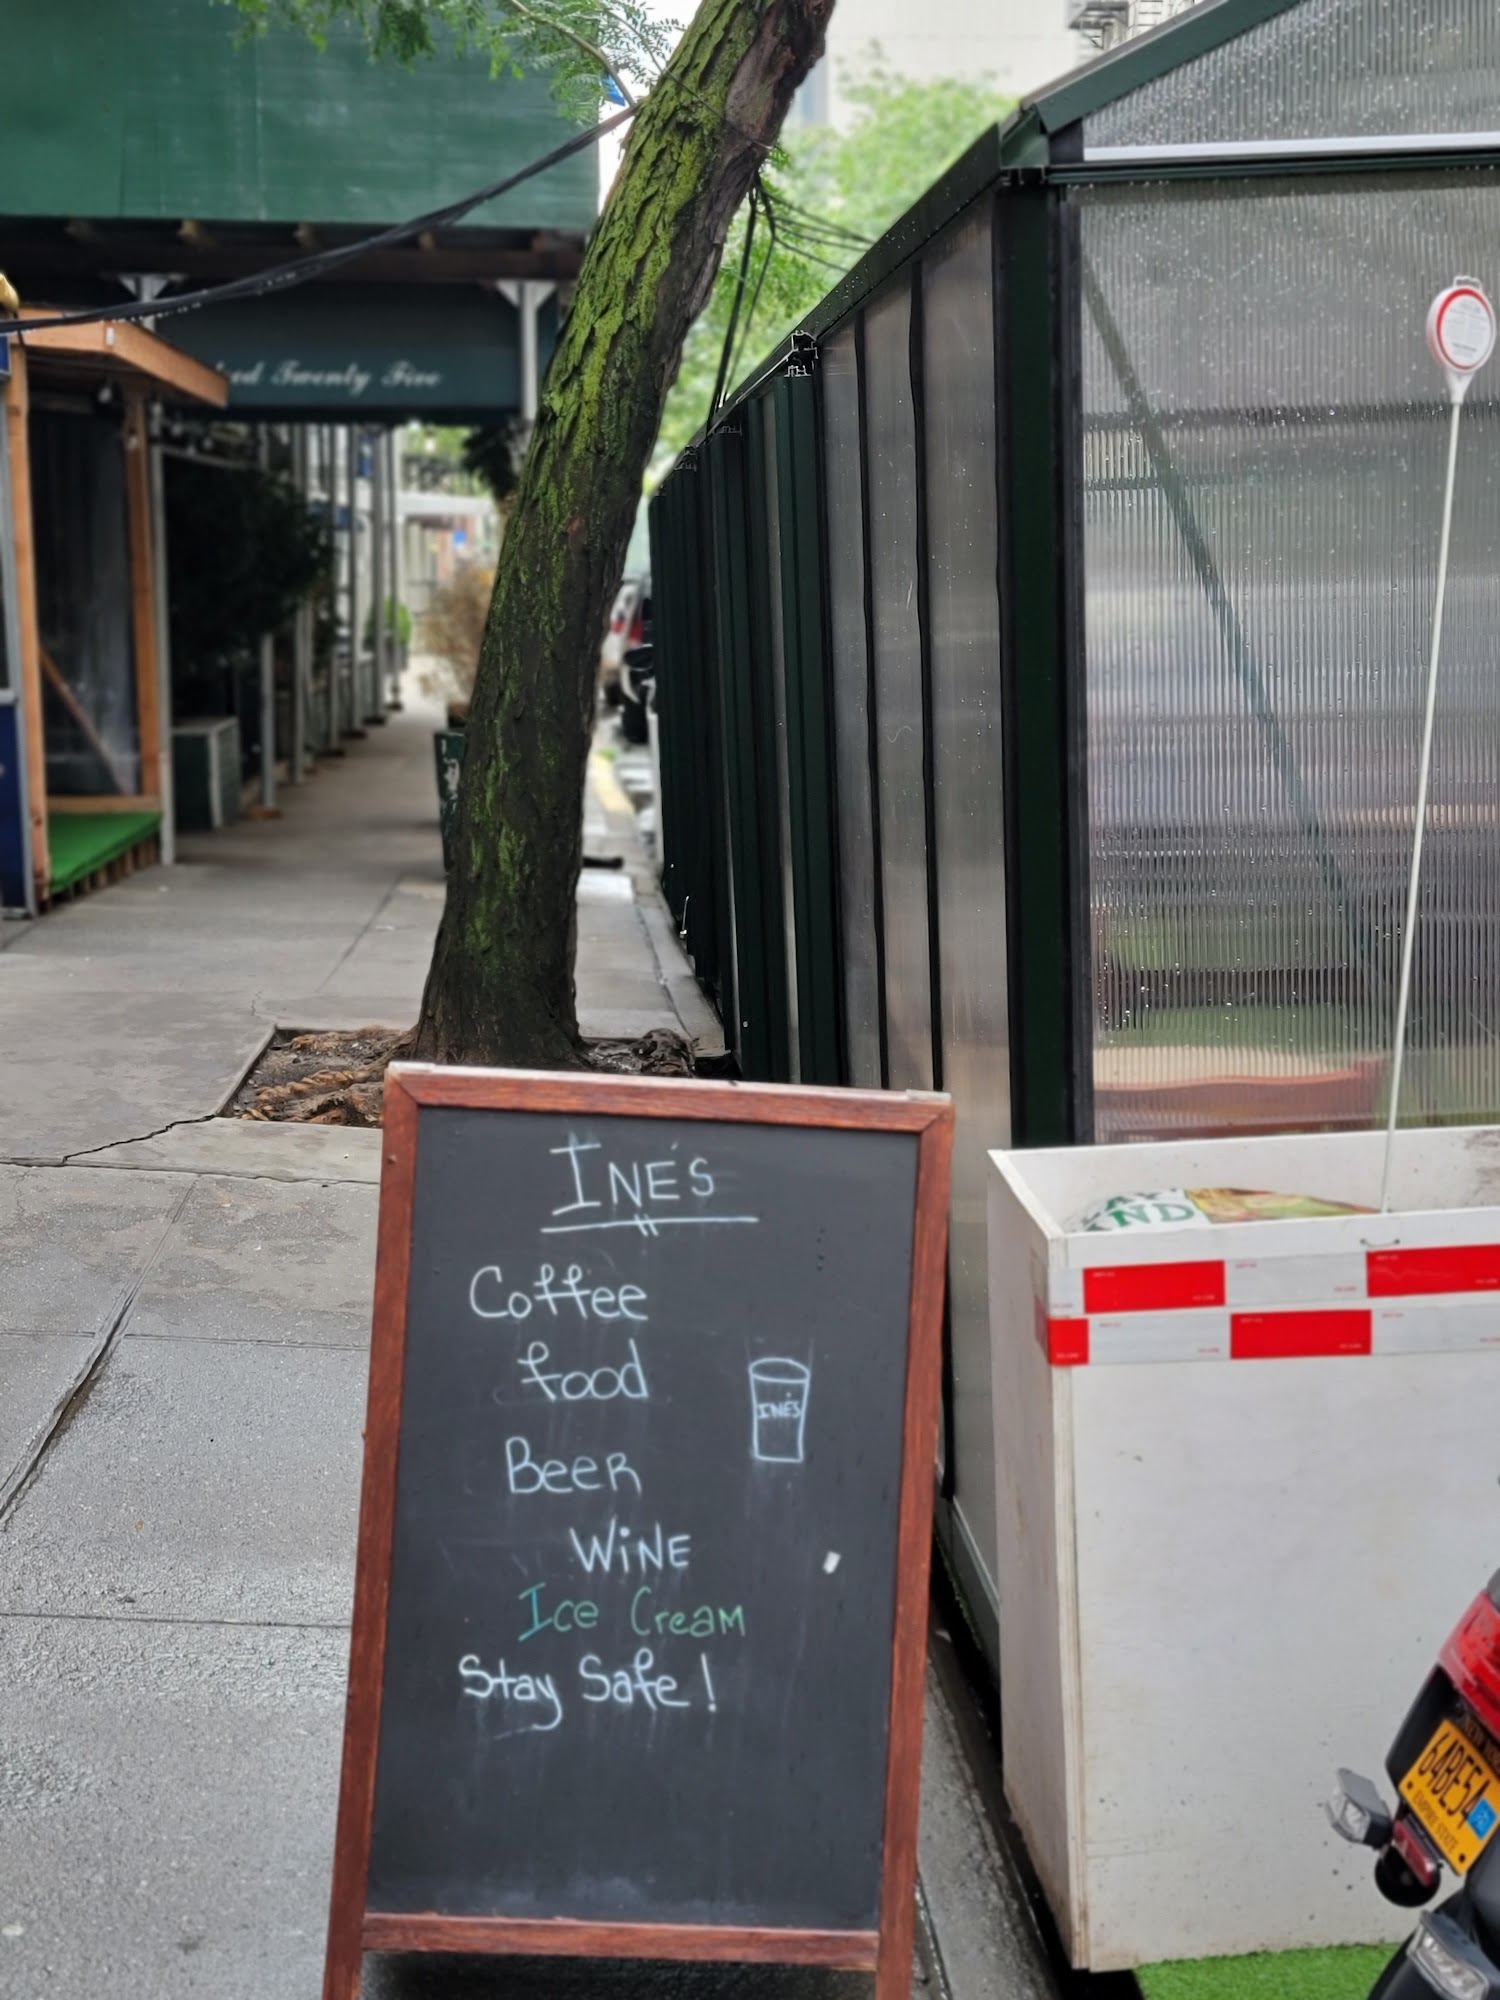 ed Twenty Five
INÉS
Coffee
food
INÉS
Beer
WiNE
Ice Cream
Stay Safe!
AND
64BE54
EMPIRE STATE